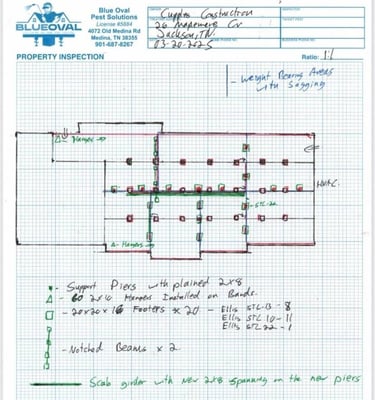 Blue Oval
Pest Solutions
License #5884
4072 Old Medina Rd
Medina, TN 38355
901-687-8267
BLUEOVAL
Cupples Construction
Jackson, TN.
03-20-2025
PROPERTY INSPECTION
Ratio: 1:1
- Weight Bearing Areas
with Sagging
Hanger →
HVAC
STL-22
Hangers →
- Support Piers with plained 2x8
60 2x10 Hangers Installed on Bands.
- 20x20x16 Footers x 20 - Ellis STL-13 - 8
Ellis STL 10 - 11
Ellis STL-22 - 1
- Notched Beams x 2
Scab girder with new 2x8 spanning on the new piers